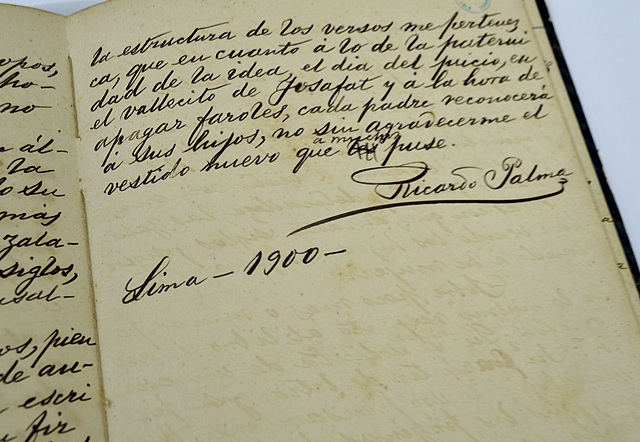 opos,
ho-
no
n ál-
la
o su
más
zala-
siglos,
usal-
os, pien
de au-
escri
fir
la estructura de los versos me pertenez
ca, que en cuanto á lo de la paterni
dad de la idea, el dia del juicio, en
el vallecito de Josafat y á la hora de
apagar faroles, cada padre reconocerá
á sus hijos, no sin agradecerme el
vestido nuevo que a muchos puse.
Ricardo Palma
Lima - 1900 -